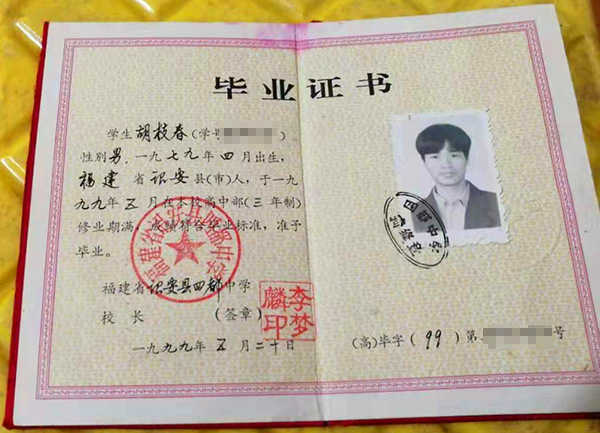 毕业证书
学生胡枝春(学号 ).
性别男.一九七九年四月出生,
福建省诏安县(市)人,于一九
九九年五月在本校高中部(三年制)
修业期满,成绩符合毕业标准,准予
毕业。
福建省诏安县四都中学
校长 (签章)
一九九九年五月二十日
福建省诏安县四都中学
李梦麟印
(高)毕字(99)第 号